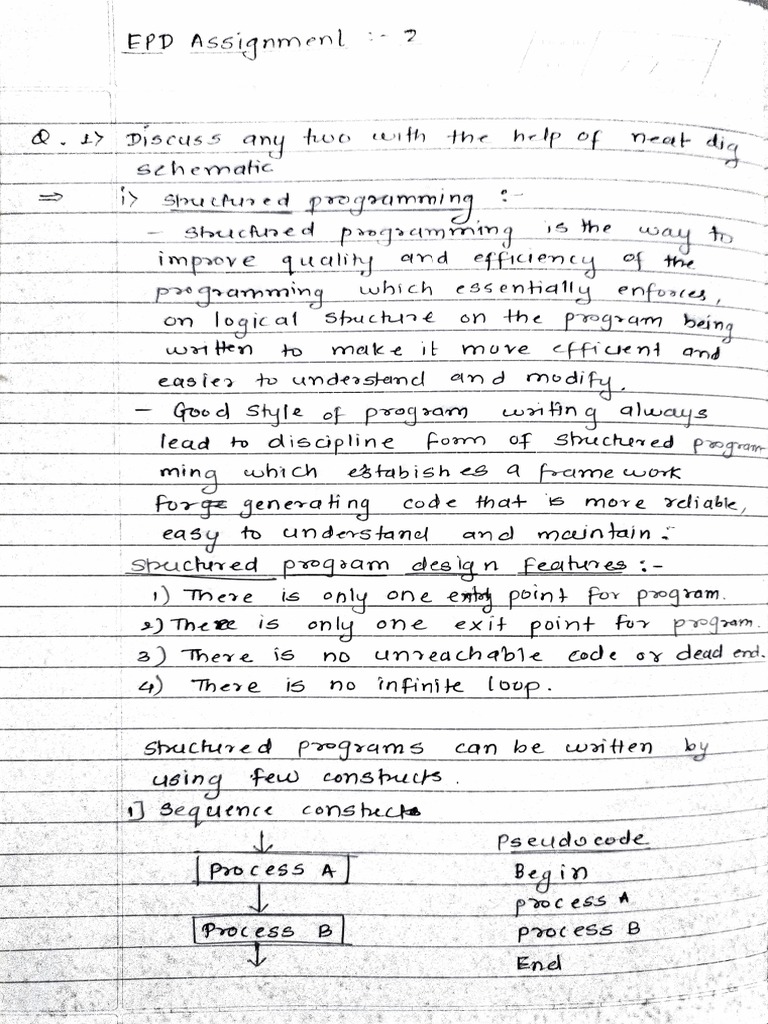 EPD Assignment :- 2
Q. 1> Discuss any two with the help of neat dig
schematic
⇒ i> structured programming :-
- structured programming is the way to
improve quality and efficiency of the
programming which essentially enforces,
on logical structure on the program being
written to make it more efficient and
easier to understand and modify.
- Good style of program writing always
lead to discipline form of structered program-
ming which estabishes a frame work
for generating code that is more reliable,
easy to understand and maintain.
structured program design features :-
1) There is only one entry point for program.
2) There is only one exit point for program.
3) There is no unreachable code or dead end.
4) There is no infinite loop.
structured programs can be written by
using few constucts.
1] sequence constucts
Pseudocode
Process A
Begin
process A
Process B
process B
End